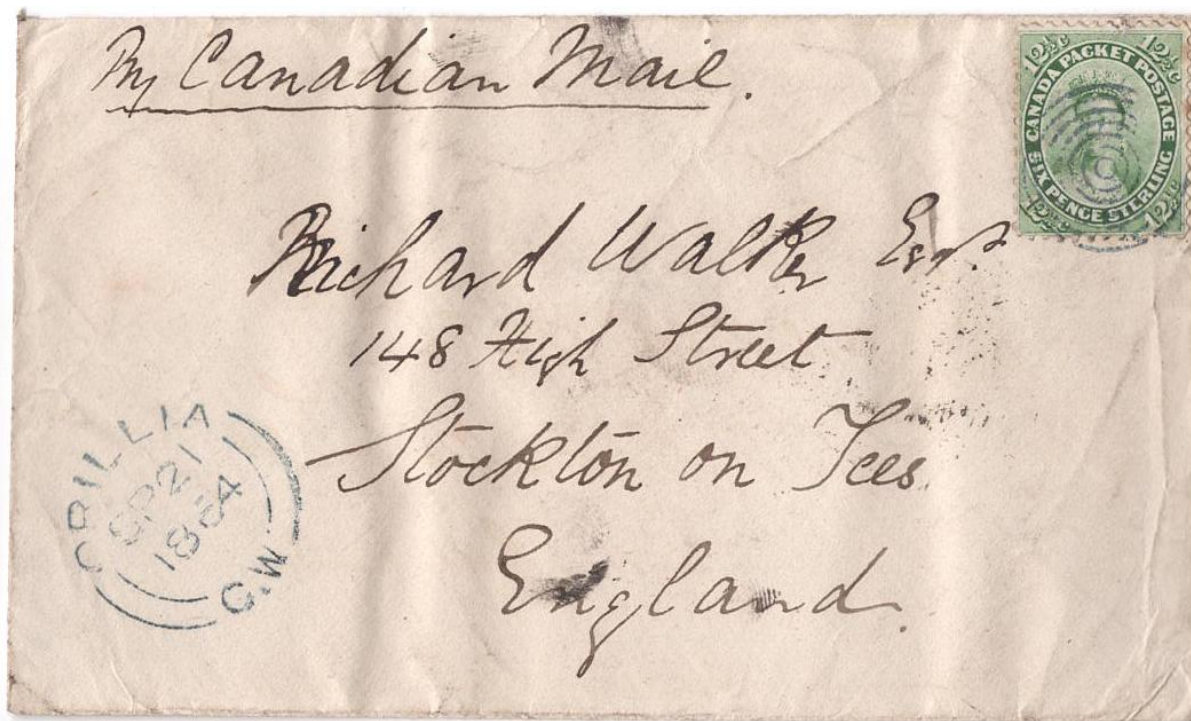 By Canadian Mail.
12½c 12½c
CANADA PACKET POSTAGE
SIX PENCE STERLING
12½c 12½c
Richard Walker Esqr.
148 High Street
Stockton on Tees
England.
ORILLIA
SP 21
1864
C.W